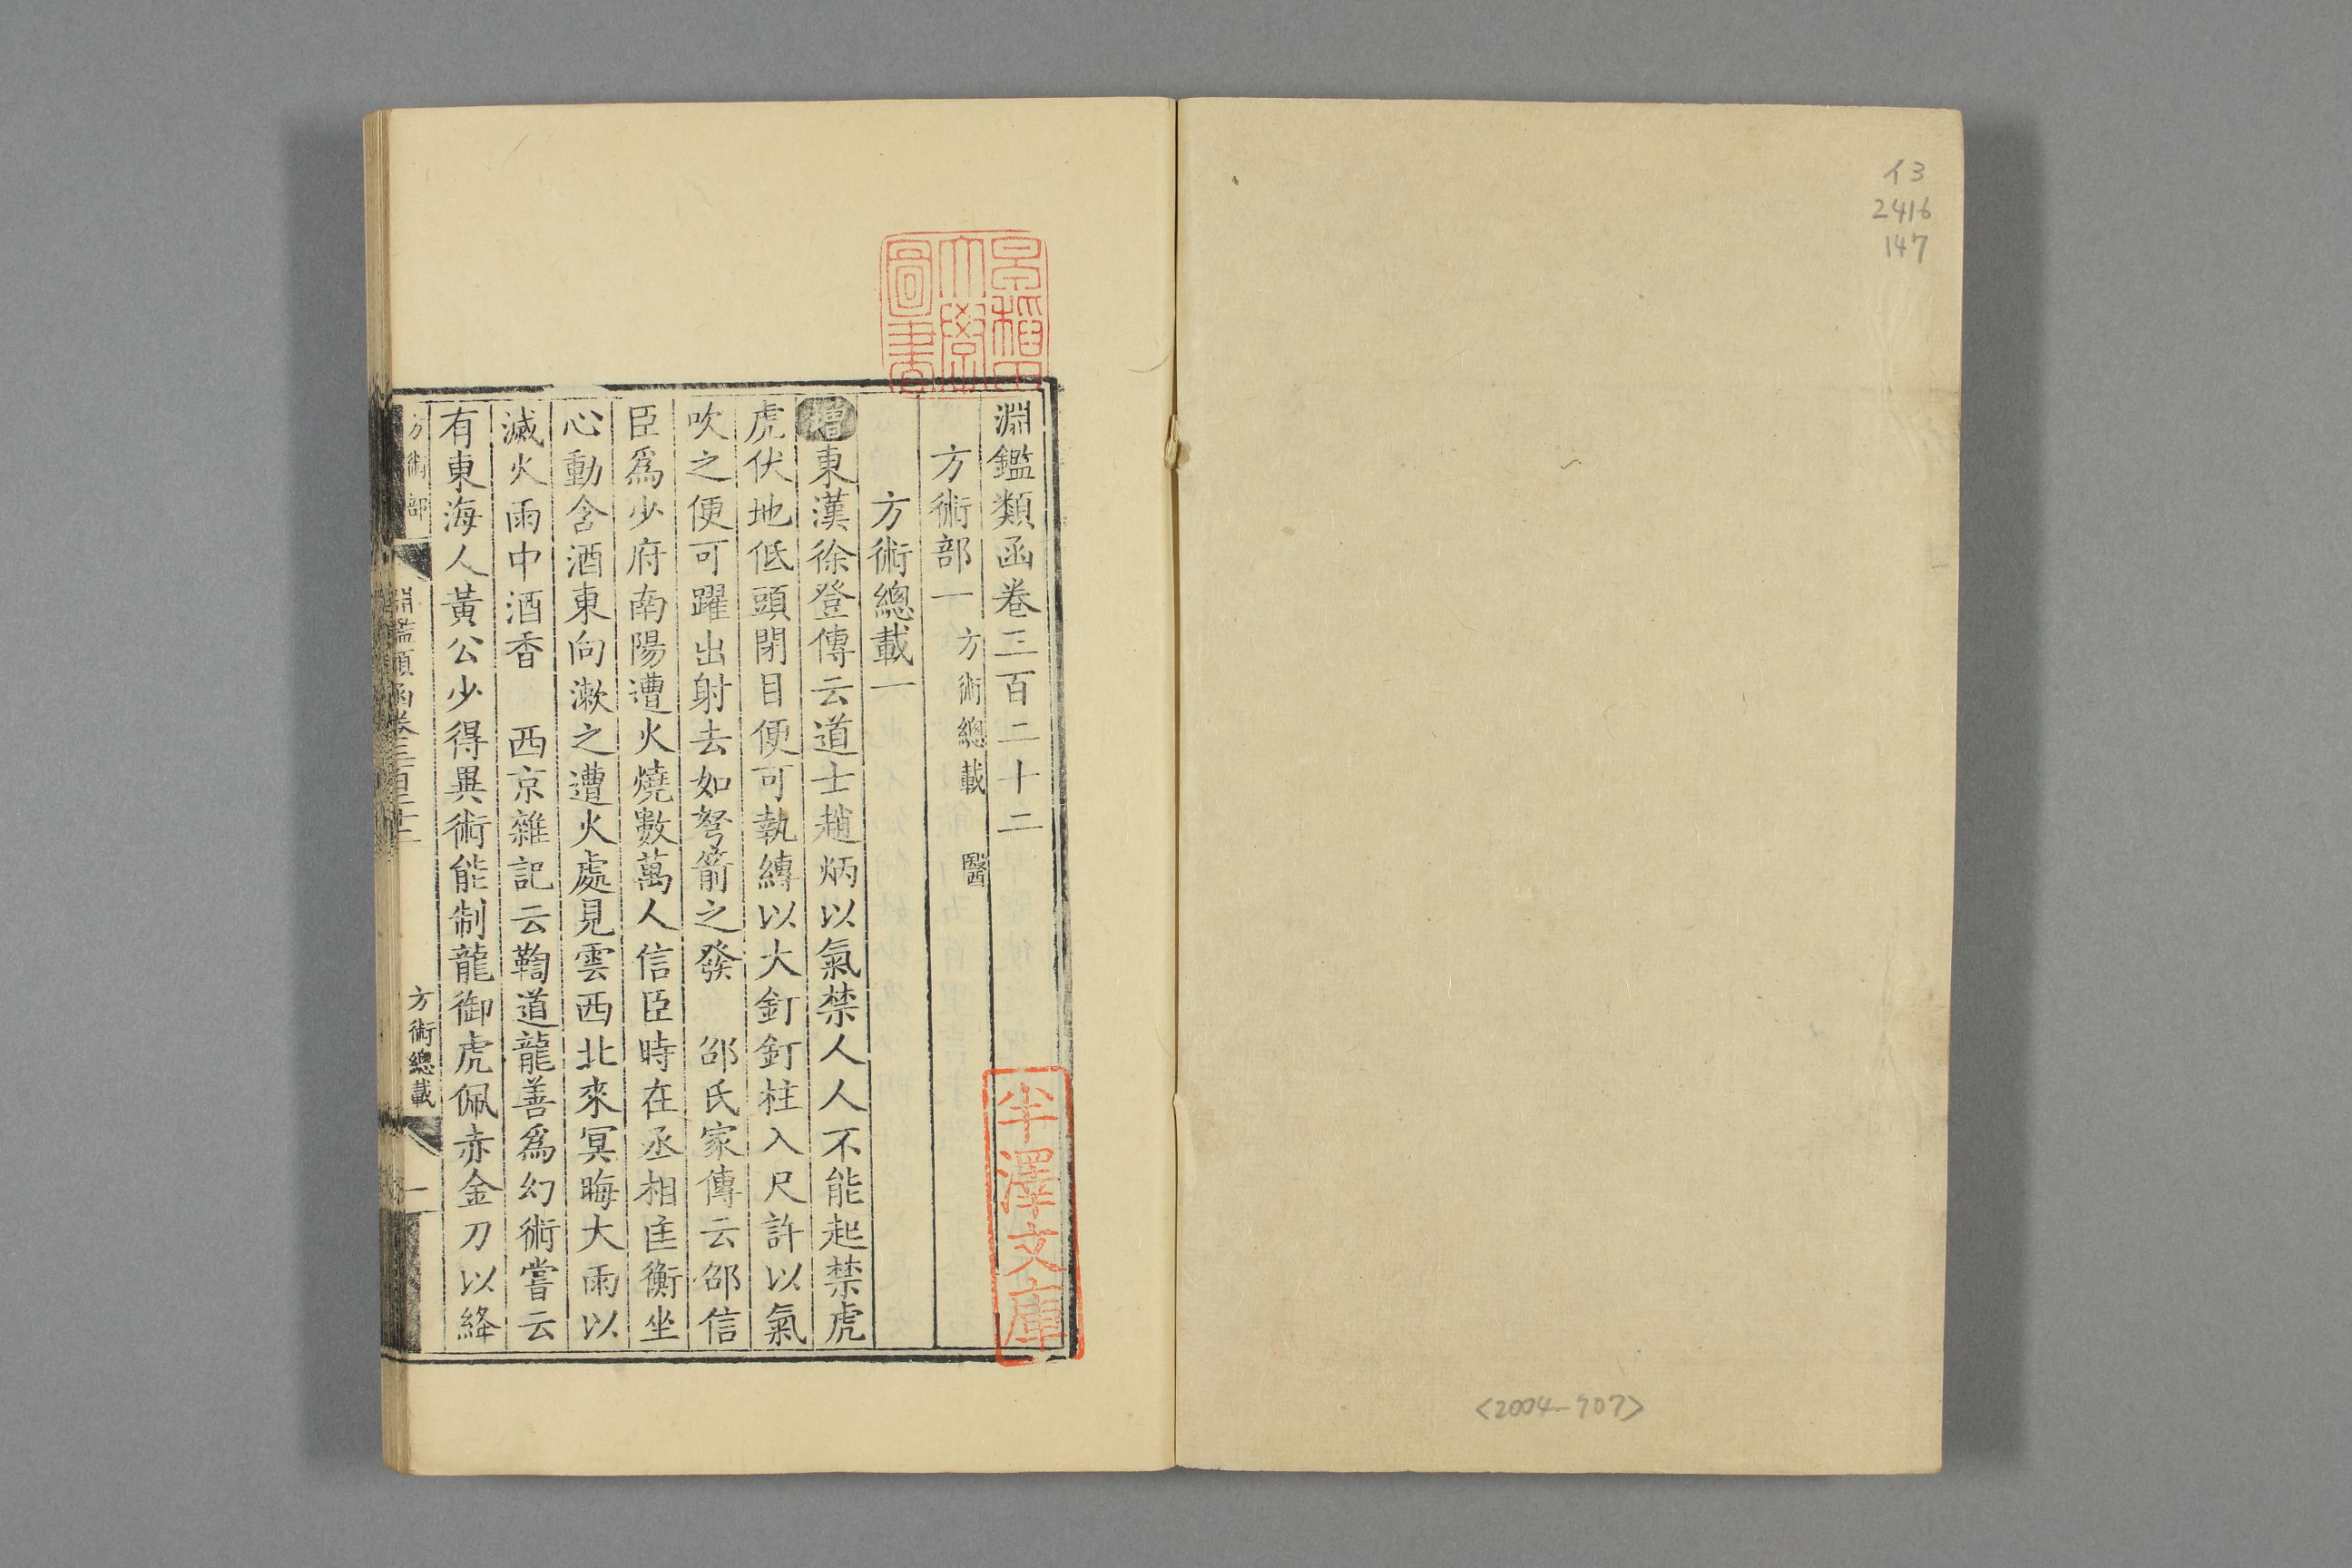 イ3
2416
147
<2004-707>
早稲田大學圖書
半澤文庫
淵鑑類函卷三百二十二
方術部一 方術總載 醫
方術總載一
增東漢徐登傳云道士趙炳以氣禁人人不能起禁虎
虎伏地低頭閉目便可執縛以大釘釘柱入尺許以氣
吹之便可躍出射去如弩箭之發 邵氏家傳云邵信
臣爲少府南陽遭火燒數萬人信臣時在丞相匡衡坐
心動含酒東向漱之遭火處見雲西北來冥晦大雨以
滅火雨中酒香 西京雜記云鞫道龍善爲幻術嘗云
有東海人黃公少得異術能制龍御虎佩赤金刀以絳
方術部 淵鑑類函卷三百二十二 方術總載 一